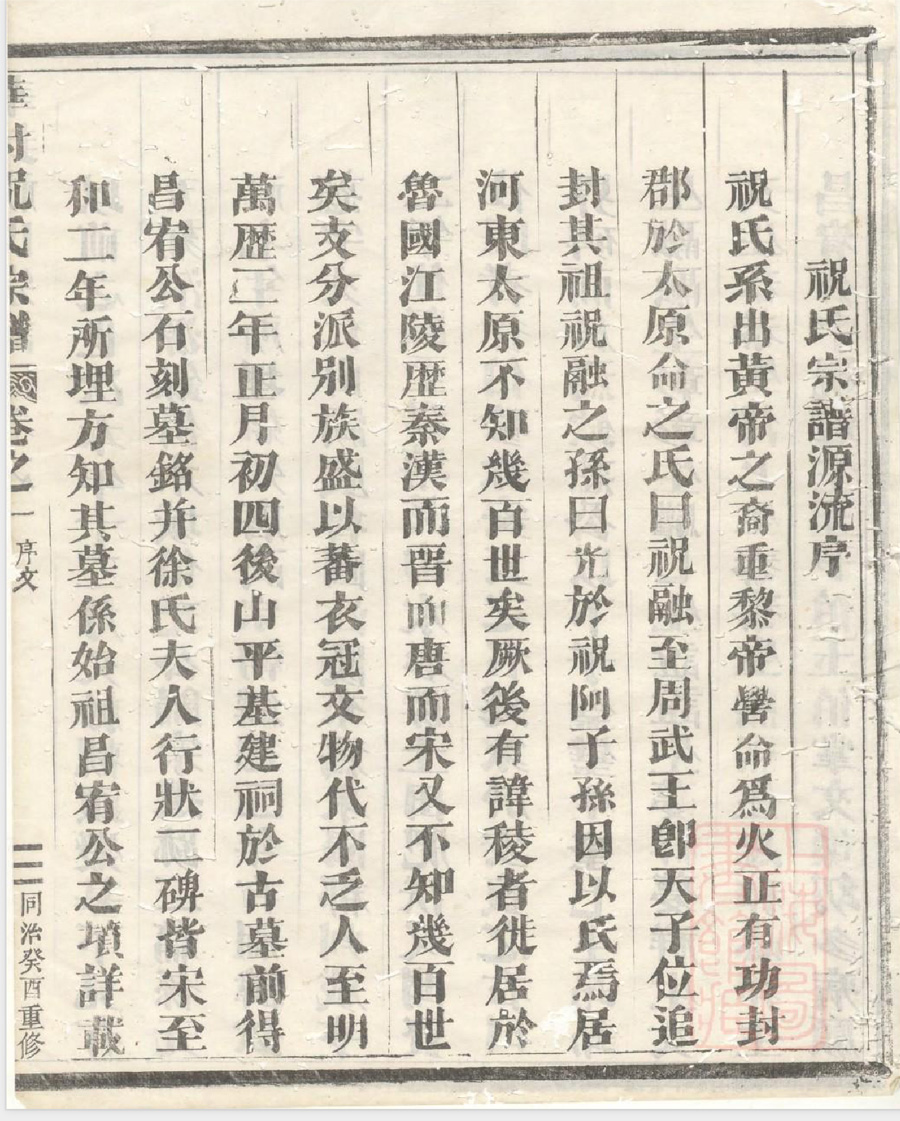 祝氏宗譜源流序
祝氏系出黃帝之裔重黎帝嚳命爲火正有功封
郡於太原命之氏曰祝融至周武王卽天子位追
封其祖祝融之孫曰光於祝阿子孫因以氏焉居
河東太原不知幾百世矣厥後有諱稜者徙居於
魯國江陵歷秦漢而晋而唐而宋又不知幾百世
矣支分派別族盛以蕃衣冠文物代不乏人至明
萬歷二年正月初四後山平基建祠於古墓前得
昌宥公石刻墓銘并徐氏夫人行狀二碑皆宋至
和二年所埋方知其墓係始祖昌宥公之墳詳載
村祝氏宗譜 卷之一 序文 同治癸酉重修